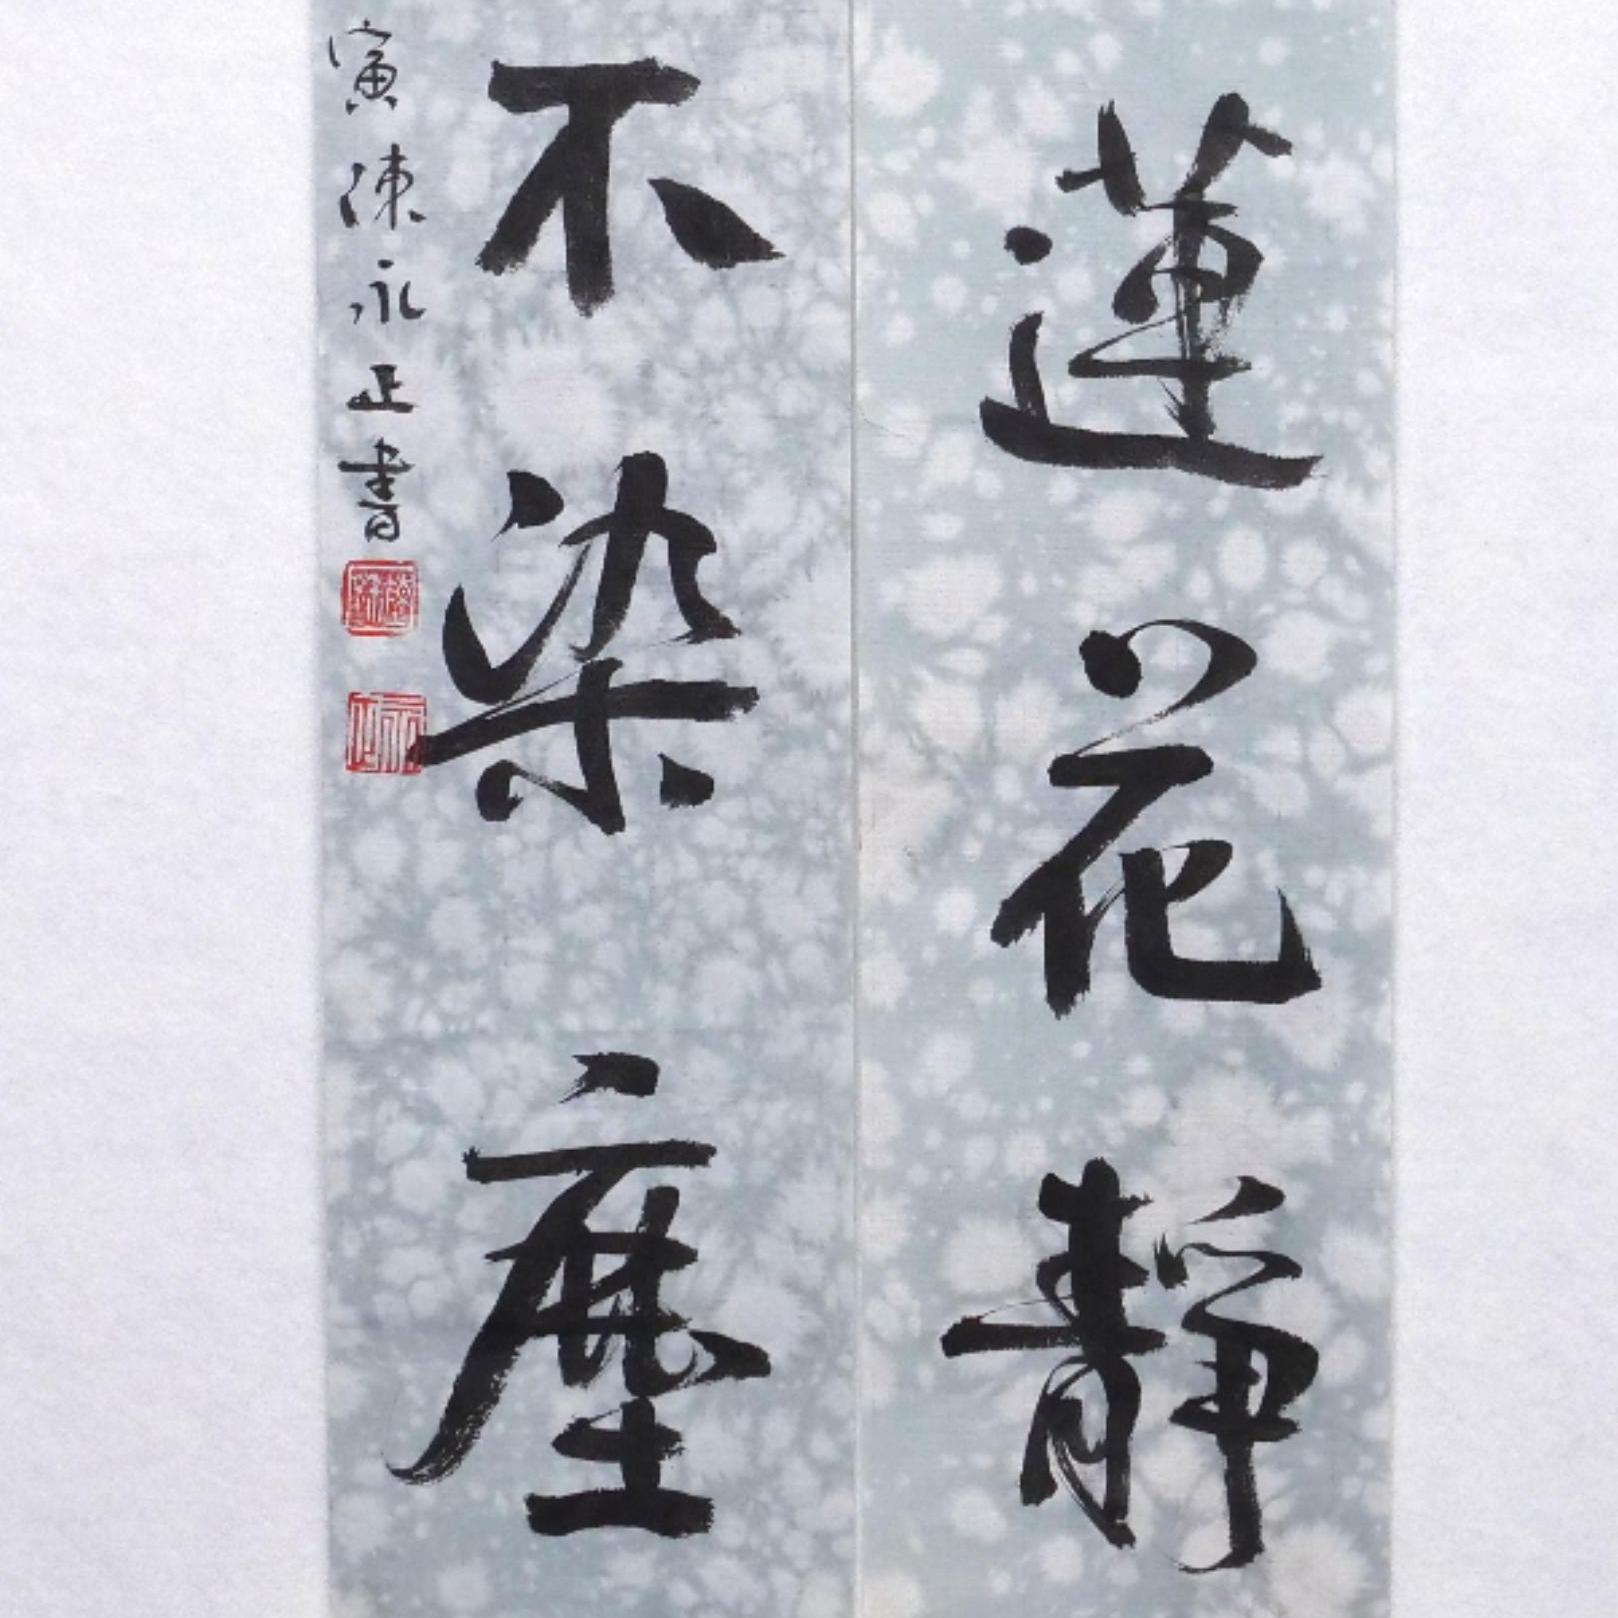 蓮花靜
不染塵
寅陳永正書